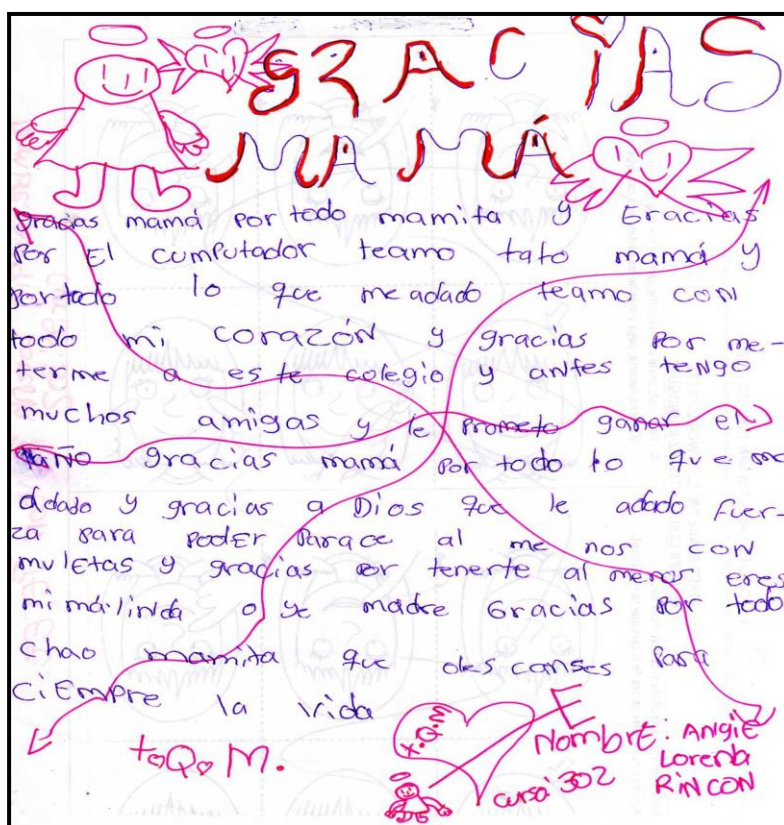 GRACiAS
MAMÁ
gracias mamá por todo mamita y Gracias
por El cumputador teamo tato mamá y
portodo lo que meadado teamo con
todo mi corazón y gracias por me-
terme a este colegio y antes tengo
muchos amigas y le prometo ganar el
año gracias mamá por todo lo que me
adado y gracias a Dios que le adado fuer-
za para poder parace al me nos con
muletas y gracias por tenerte al menos eres
mi málinda o ye madre Gracias por todo
chao mamita que descanses para
ciEmpre la vida
t.Q.M.
t.Q.M
NombrE: ANGiE
Lorena
RiNCON
curso 302